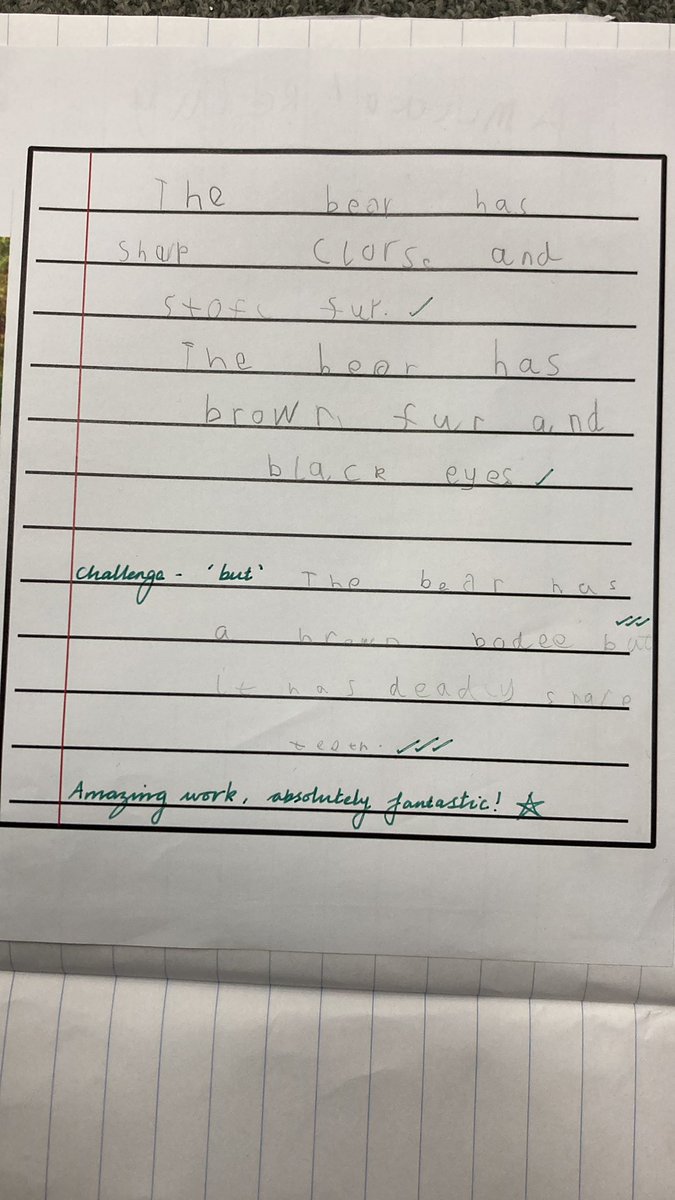 The bear has
sharp Clors. and
stofc fur. ✓
The bear has
brown fur and
black eyes ✓
Challenge - 'but' The bear has
a brown badee but ✓✓✓
It has deadly
teath. ✓✓✓
Amazing work, absolutely fantastic! ☆